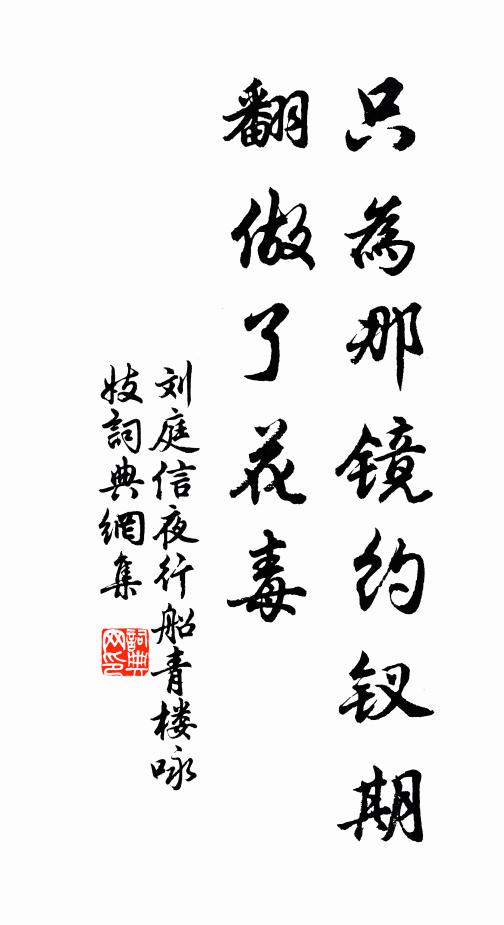 只為那镜约钗期
翻做了花毒
刘庭信夜行船青楼咏
妓詞典網集
詞典网印